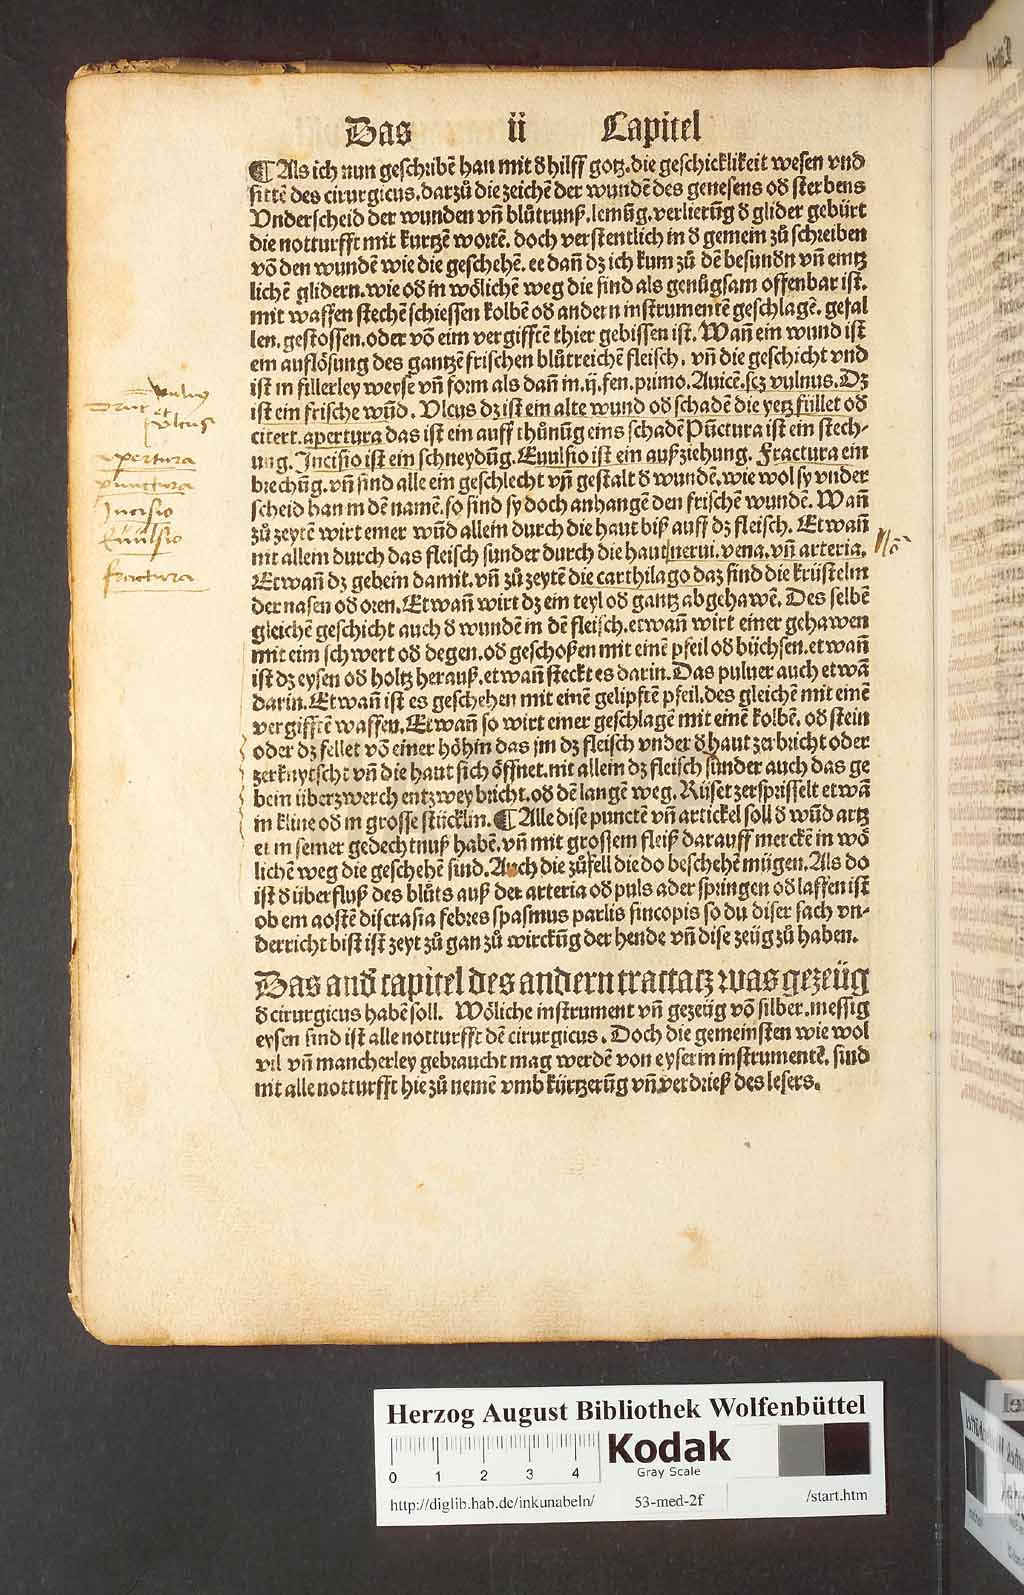 Das ii Capitel
¶ Als ich nun geschribē han mit d hilff gotz. die geschicklikeit wesen vnd
sittē des cirurgicus. darzů die zeichē der wundē des genesens od sterbens
Vnderscheid der wunden vñ blůtrunß. lemūg. verlierūg d glider gebürt
die notturfft mit kurtzē wortē. doch verstentlich in d gemein zů schreiben
vō den wundē wie die geschehē. ee dañ dz ich kum zů dē besundn vñ eintz
lichē glidern. wie od in wölichē weg die sind als genůgsam offenbar ist.
mit waffen stechē schiessen kolbē od andern instrumentē geschlagē. gefal
len. gestossen. oder vō eim vergifftē thier gebissen ist. Wañ ein wund ist
ein auflösung des gantzē frischen blůtreichē fleisch. vñ die geschicht vnd
ist in fillerley weyse vñ form als dañ in. iiij. fen. primo. Auicē. scz vulnus. Dz
ist ein frische wūd. Ulcus dz ist ein alte wund od schadē die yetz füllet od
citert. apertura das ist ein auff thůnūg eins schadē Pūctura ist ein stech-
ung. Incisio ist ein schneydūg. Euulsio ist ein außziehung. Fractura ein
brechūg. vñ sind alle ein geschlecht vñ gestalt d wundē. wie wol sy vnder
scheid han in dē namē. so sind sy doch anhangē den frischē wundē. Wañ
zů zeytē wirt einer wūd allein durch die haut biß auff dz fleisch. Etwañ
nit allein durch das fleisch sunder durch die haut nerui. vena. vñ arteria.
Etwañ dz gebein damit. vñ zů zeytē die carthilago daz sind die krüstelin
der nasen od oren. Etwañ wirt dz ein teyl od gantz abgehawē. Des selbē
gleichē geschicht auch d wundē in dē fleisch. etwañ wirt einer gehawen
mit eim schwert od degen. od geschoßen mit einē pfeil od büchsen. etwañ
ist dz eysen od holtz herauß. etwañ steckt es darin. Das puluer auch etwā
darin. Etwañ ist es geschehen mit einē gelipftē pfeil. des gleichē mit einē
vergifftē waffen. Etwañ so wirt einer geschlagē mit einē kolbē. od stein
oder dz fellet vō einer höhin das im dz fleisch vnder d haut zerbricht oder
zerknytscht vñ die haut sich öffnet. nit allein dz fleisch sunder auch das ge
bein überzwerch entzwey bricht. od dē langē weg. Rüset zersprisselt etwā
in kline od in grosse stücklin. ¶ Alle dise punctē vñ artickel soll d wūd artz
et in seiner gedechtnuß habē. vñ mit grossem fleiß darauff merckē in wö
lichē weg die geschehē sind. Auch die zůfell die do beschehē mügen. Als do
ist d überfluß des blůts auß der arteria od puls ader springen od lassen ist
ob ein aostē discrasia febres spasmus parlis sincopis so du diser sach vn-
derricht bist ist zeyt zů gan zů wirckūg der hende vñ dise zeüg zů haben.
Das and capitel des andern tractatz was gezeüg
d cirurgicus habē soll. Wöliche instrument vñ gezeüg vō silber. messig
eysen sind ist alle notturfft dē cirurgicus. Doch die gemeinsten wie wol
vil vñ mancherley gebraucht mag werdē von eyserin instrumentē. sind
nit alle notturfft hie zů nemē vmb kürtzerūg vñ verdrieß des lesers.
vulnus
et
Vlcus
apertura
punctura
Incisio
Euulsio
fractura
Herzog August Bibliothek Wolfenbüttel
Kodak
Gray Scale
0 1 2 3 4
http://diglib.hab.de/inkunabeln/ 53-med-2f /start.htm